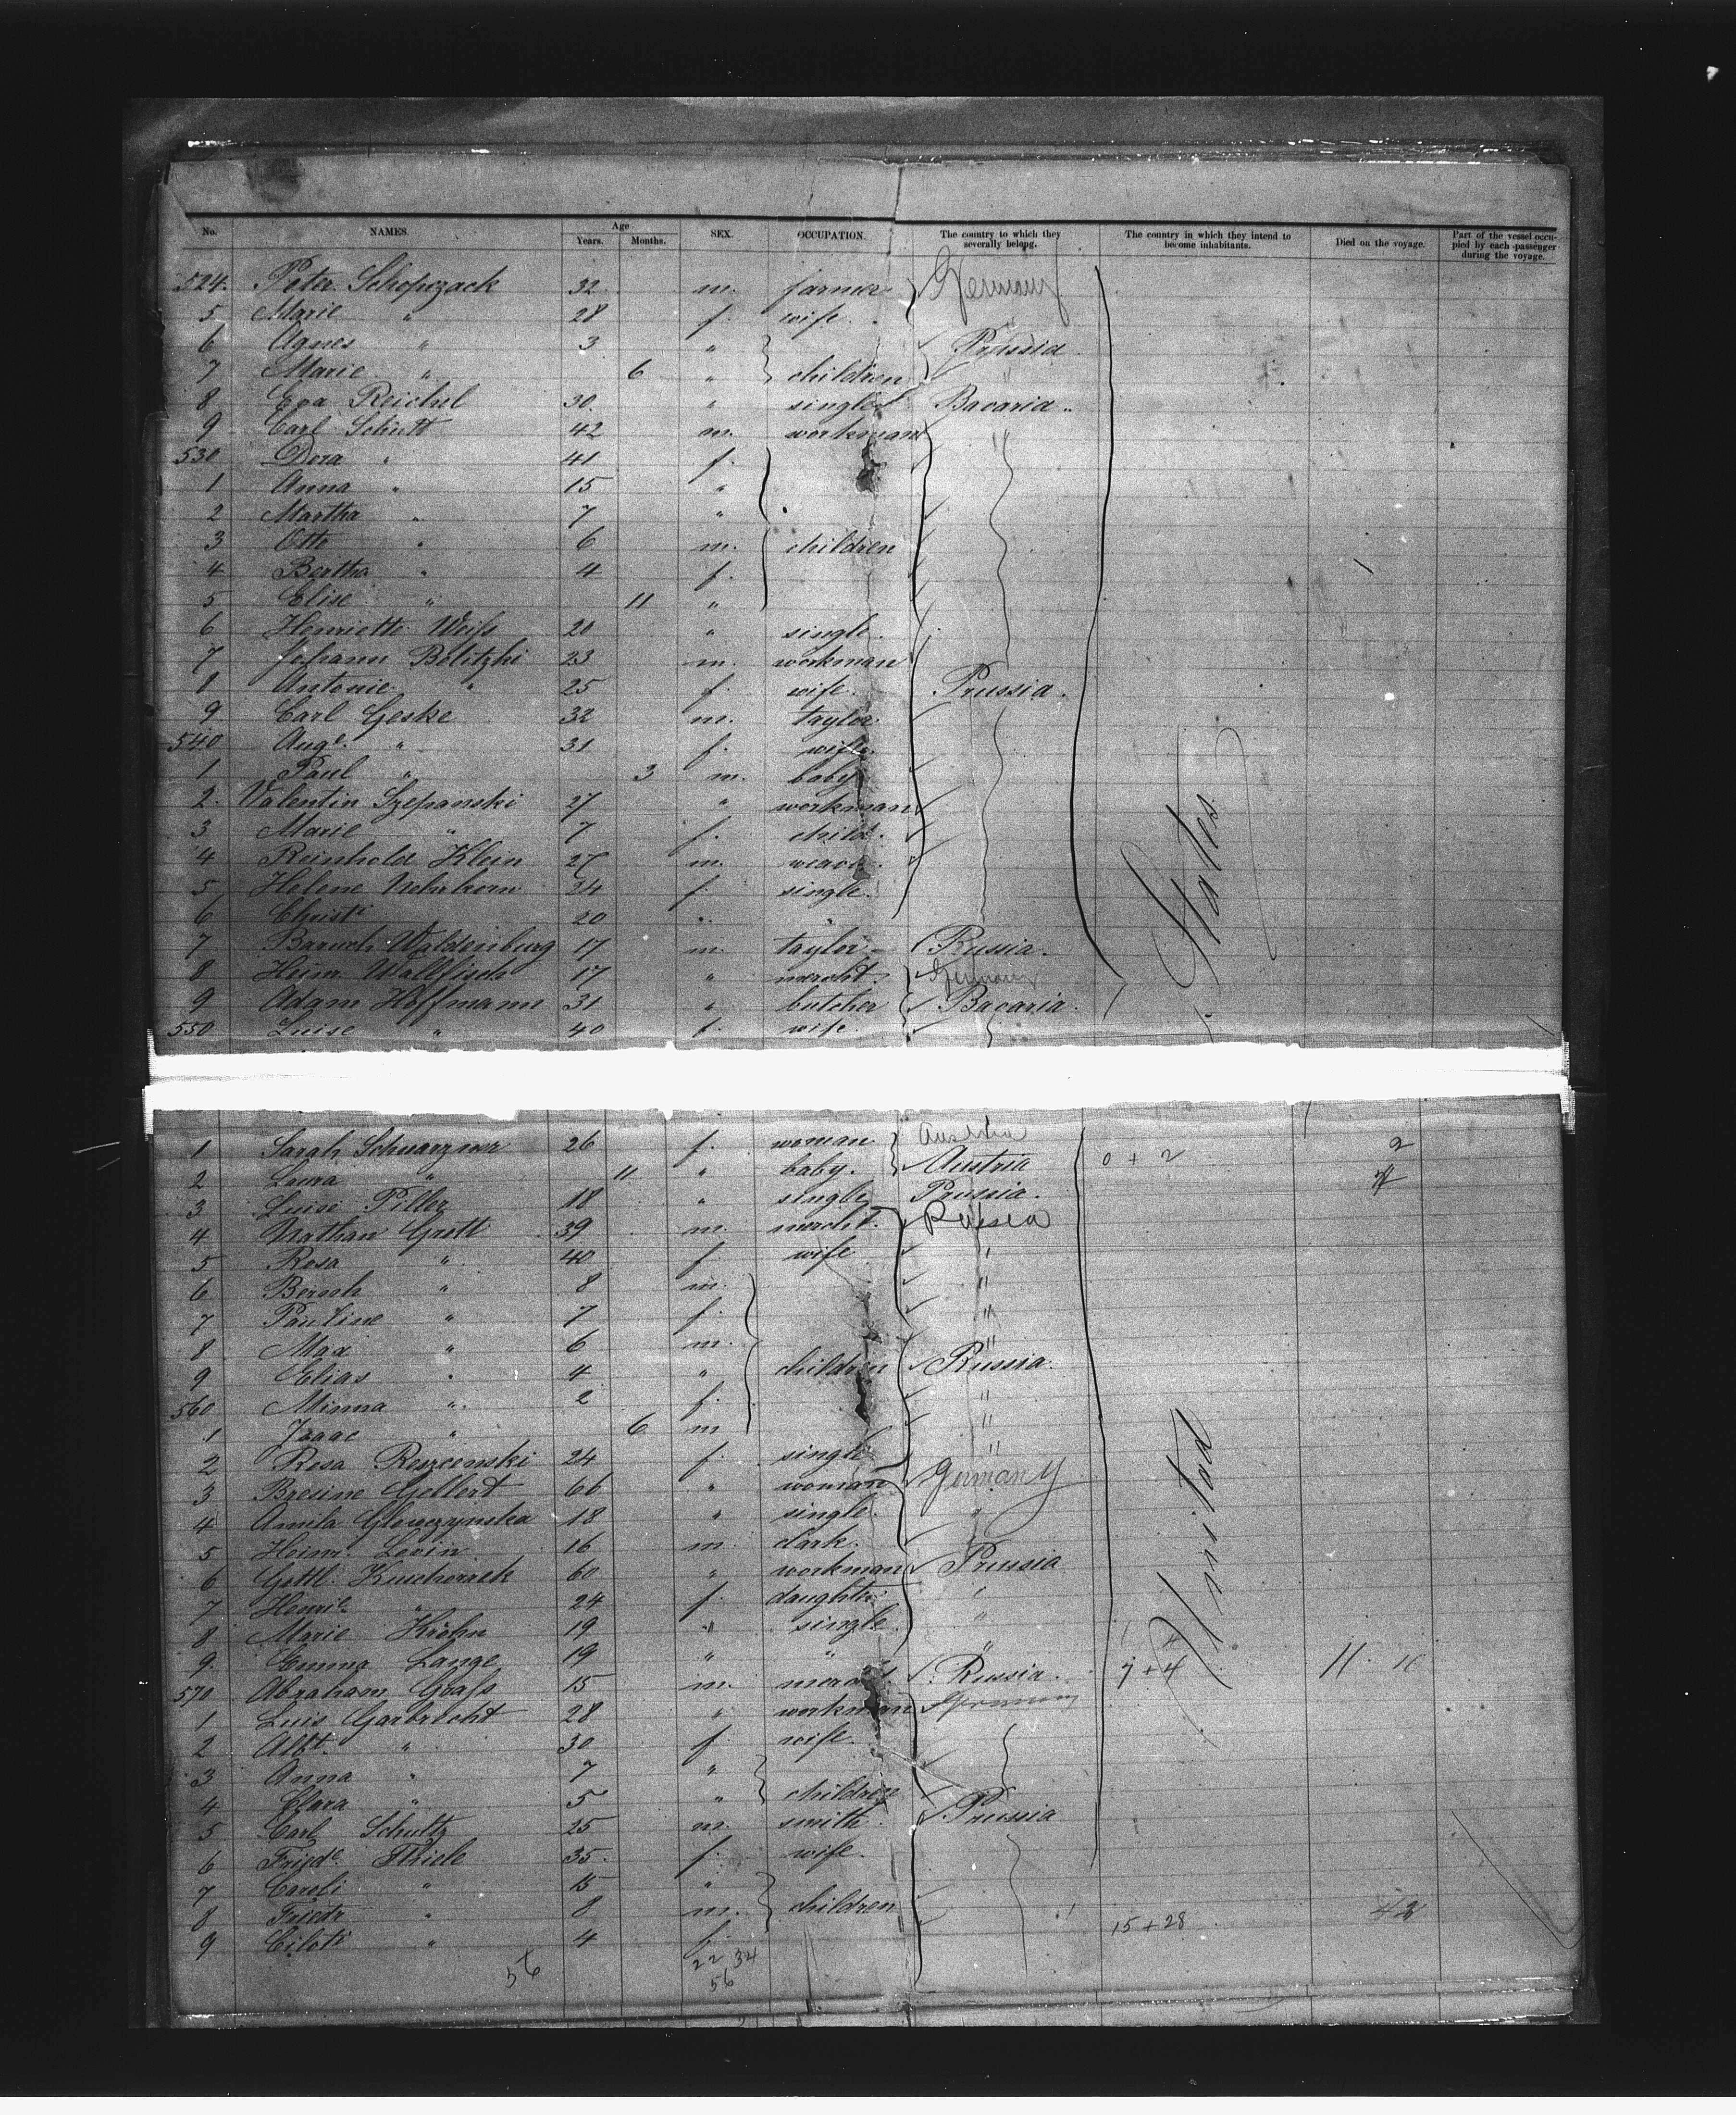 No. NAMES. Age Years. Months. SEX. OCCUPATION. The country to which they severally belong. The country in which they intend to become inhabitants. Died on the voyage. Part of the vessel occupied by each passenger during the voyage.
524. Peter Schopczack 32 m. farmer Germany
5 Marie " 28 f. wife.
6 Agnes " 3 " Prussia
7 Marie " 6 " children "
8 Eva Reichel 30. " single Bavaria
9 Carl Schütt 42 m. workman "
530 Dora " 41 f.
1 Anna " 15 "
2 Martha " 7 "
3 Otto " 6 m. children
4 Bertha " 4 f.
5 Elise " 11 "
6 Henriette Weiss 20 " single.
7 Johann Bolitzki 23 m. workman
8 Antonie " 25 f. wife. Prussia.
9 Carl Geske 32 m. taylor
540 Auge. " 31 f. wife.
1 Paul " 3 m. baby
2. Valentin Szepanski 27 " workman
3 Marie " 7 f. child.
4 Reinhold Klein 27 m.
5 Helene 24 f. single.
6 Christe 20 " "
7 Baruch Waldenburg 17 m. taylor Russia.
8 Heim. Wallfisch 17 " mercht. Germany
9 Adam Hoffmann 31 " butcher Bavaria.
550 Luise " 40 f. wife.
States
1 Sarah 26 f. woman Austria 2
2 Laura " 11 " baby. Austria 0 + 2
3 Luise Piller 18 " single Prussia.
4 Nathan Grott 39 m. mercht. Russia
5 Rosa " 40 f wife "
6 Bersch " 8 m. "
7 Pauline " 7 f. "
8 Max " 6 m. "
9 Elias " 4 " children Russia.
560 Minna " 2 f. "
1 Isaac " 6 m "
2 Rosa 24 f. single "
3 Gellert 66 " woman Germany
4 18 " single. "
5 Heim. Levin 16 m. clark.
6 Gottl. 60 " workman Prussia
7 Henrie. " 24 f. daughter "
8 Marie Krohn 19 " single "
9. Emma Lange 19 " " "
570 Abraham 15 m. mercht Russia. 7 + 4 11 10
1 Luis Garbrecht 28 " workman Germany
2 Albt. " 30 f wife.
3 Anna " 7 "
4 Clara " 5 " children
5 Carl Schultz 25 m. smith. Prussia
6 Friede. Thiele 35. f. wife.
7 Caroli " 15 "
8 Friedr " 8 m. children
9 " 4 f. 15 + 28 42
United
56 22 34
56